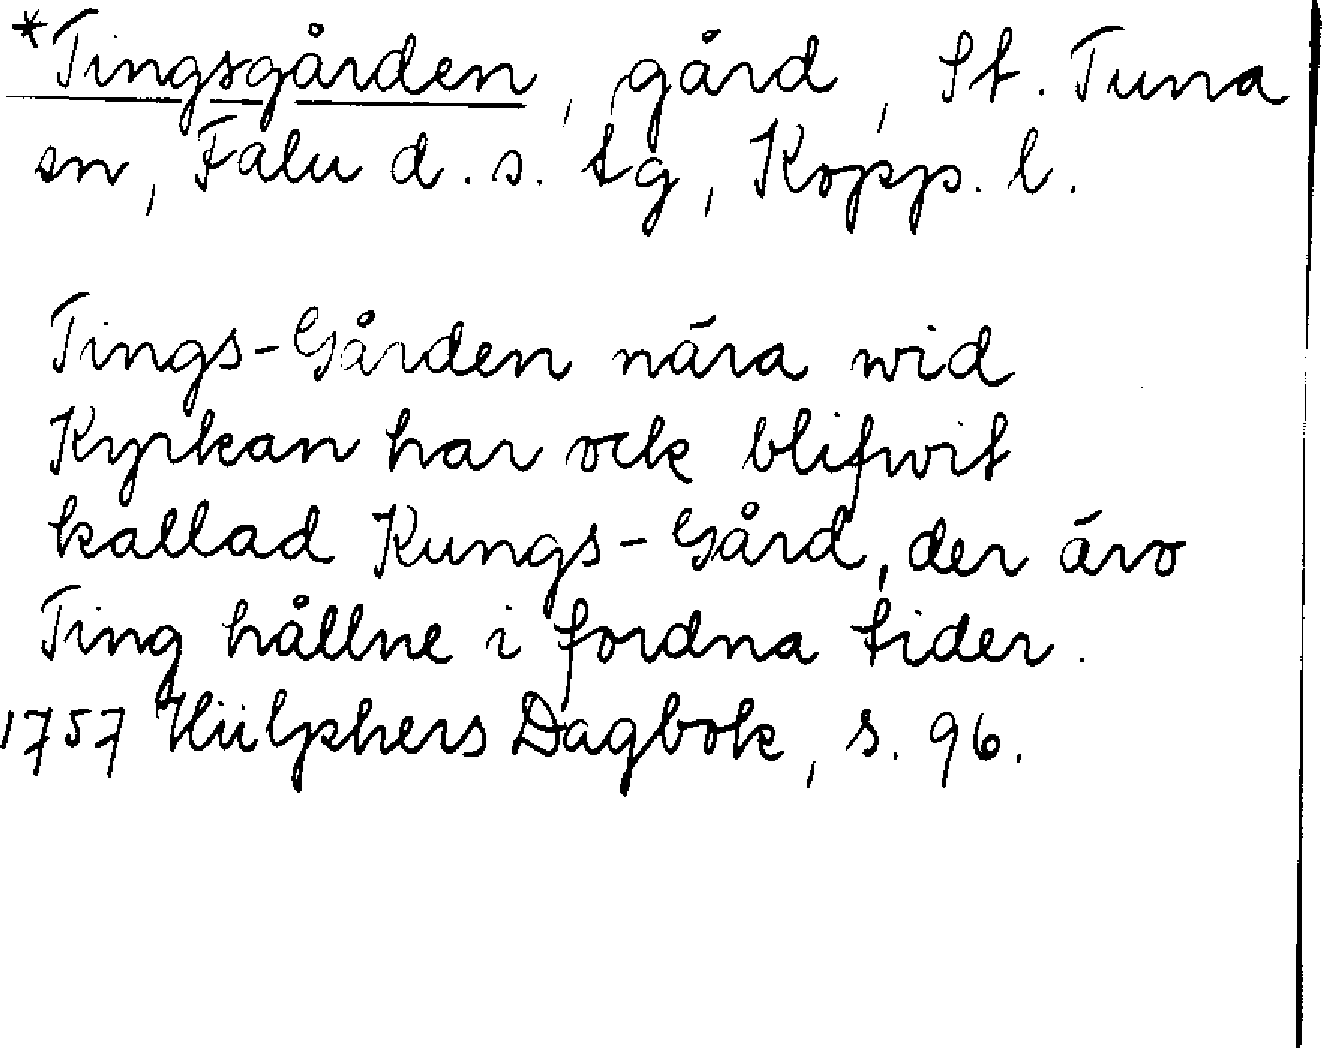 *Tingsgården, gård, St. Tuna
sn, Falu d. s. tg, Kopp. l.
Tings-Gården nära wid
Kyrkan har ock blifwit
kallad Kungs-Gård, der äro
Ting hållne i fordna tider.
1757 Hülphers Dagbok, s. 96.